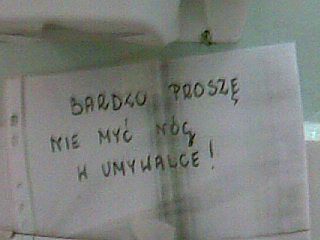 BARDZO PROSZĘ
NIE MYĆ NÓG
W UMYWALCE!